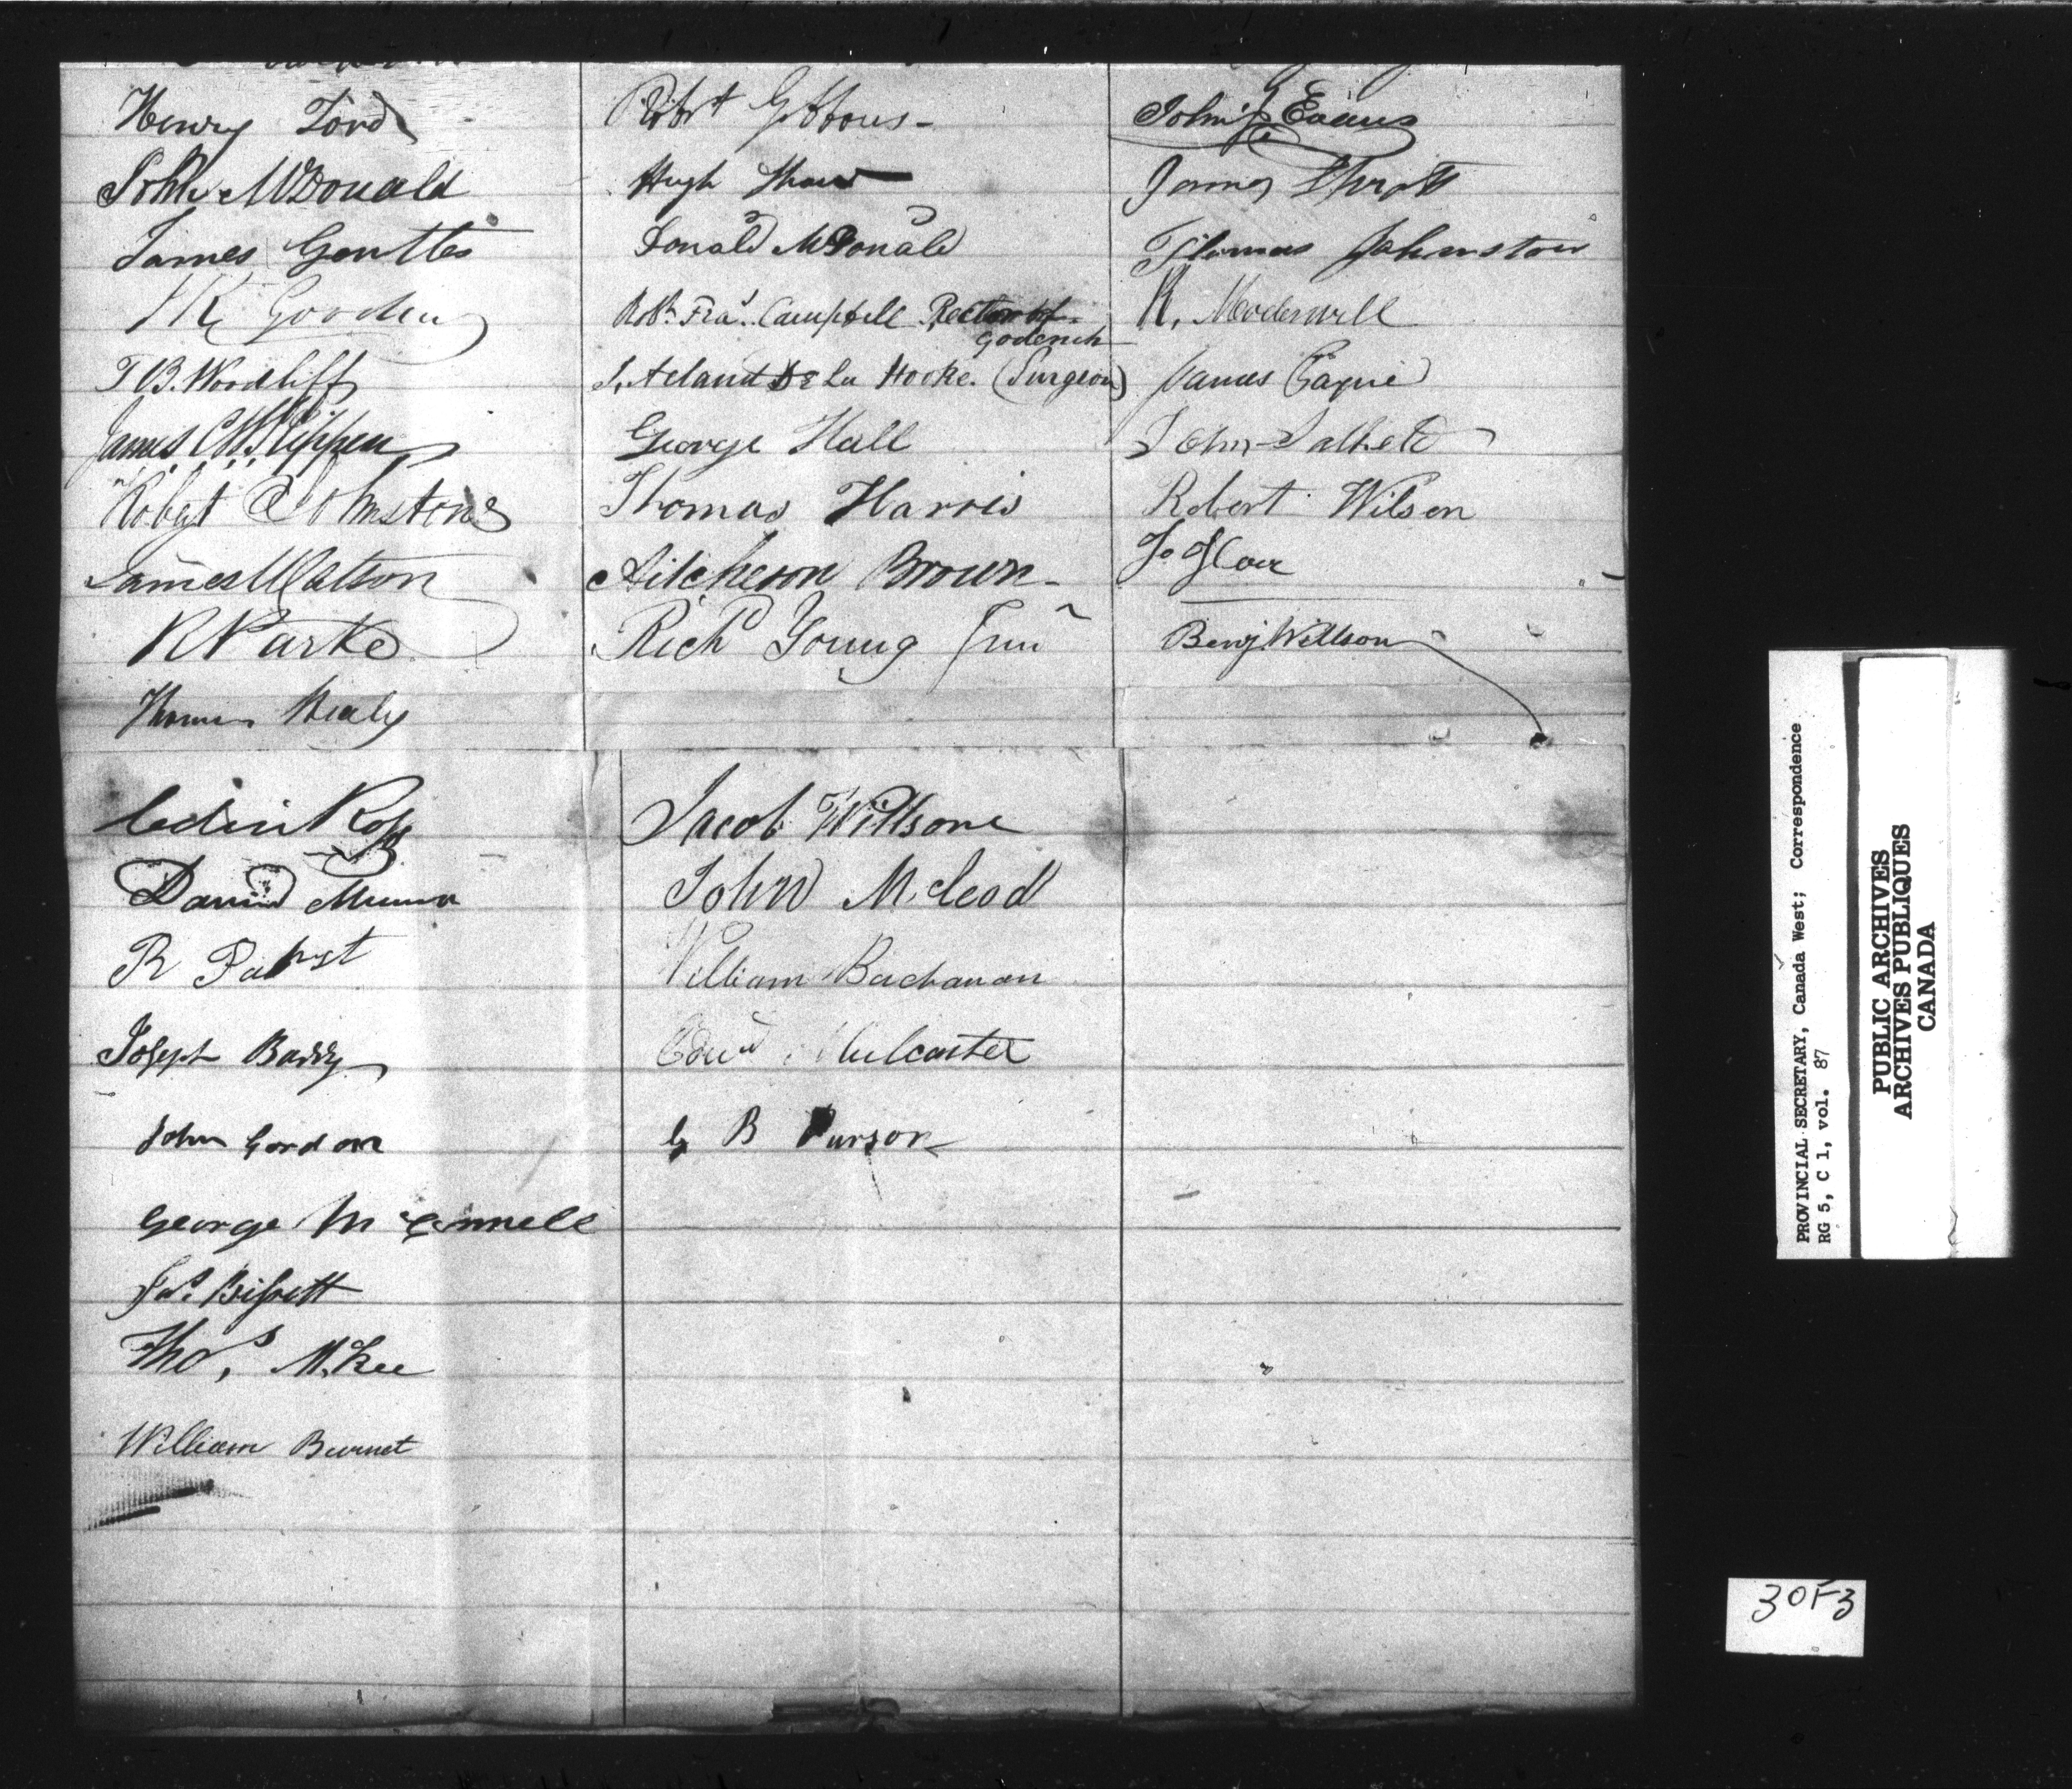 Henry Ford
John McDonald
James Gentles
Gooding
T B. Woodliff
James
Robert Johnstone
James Watson
R Parke
Thomas Healy
Robt Gibbons -
Hugh
Donald McDonald
Robt. Fras. Campbell Rector of
Goderich
Acland De La Hooke. (Surgeon)
George Hall
Thomas Harris
Aitcheson Brown -
Richd Young Junr
John Evans
James
Thomas Johnston
R. Moderwell
James
John Salkeld
Robert Wilson
Benj. Willson
Colin Ross
David Munro
R Pabst
Joseph Barry
John Gordon
George Mc
Jas. Bissett
Thos. McKee
William Burnet
Jacob Willsone
John McLeod
William Buchanan
Edwd Mulcaster
G B Purson
PROVINCIAL SECRETARY, Canada West; Correspondence
RG 5, C 1, vol. 87
PUBLIC ARCHIVES
ARCHIVES PUBLIQUES
CANADA
3 OF 3